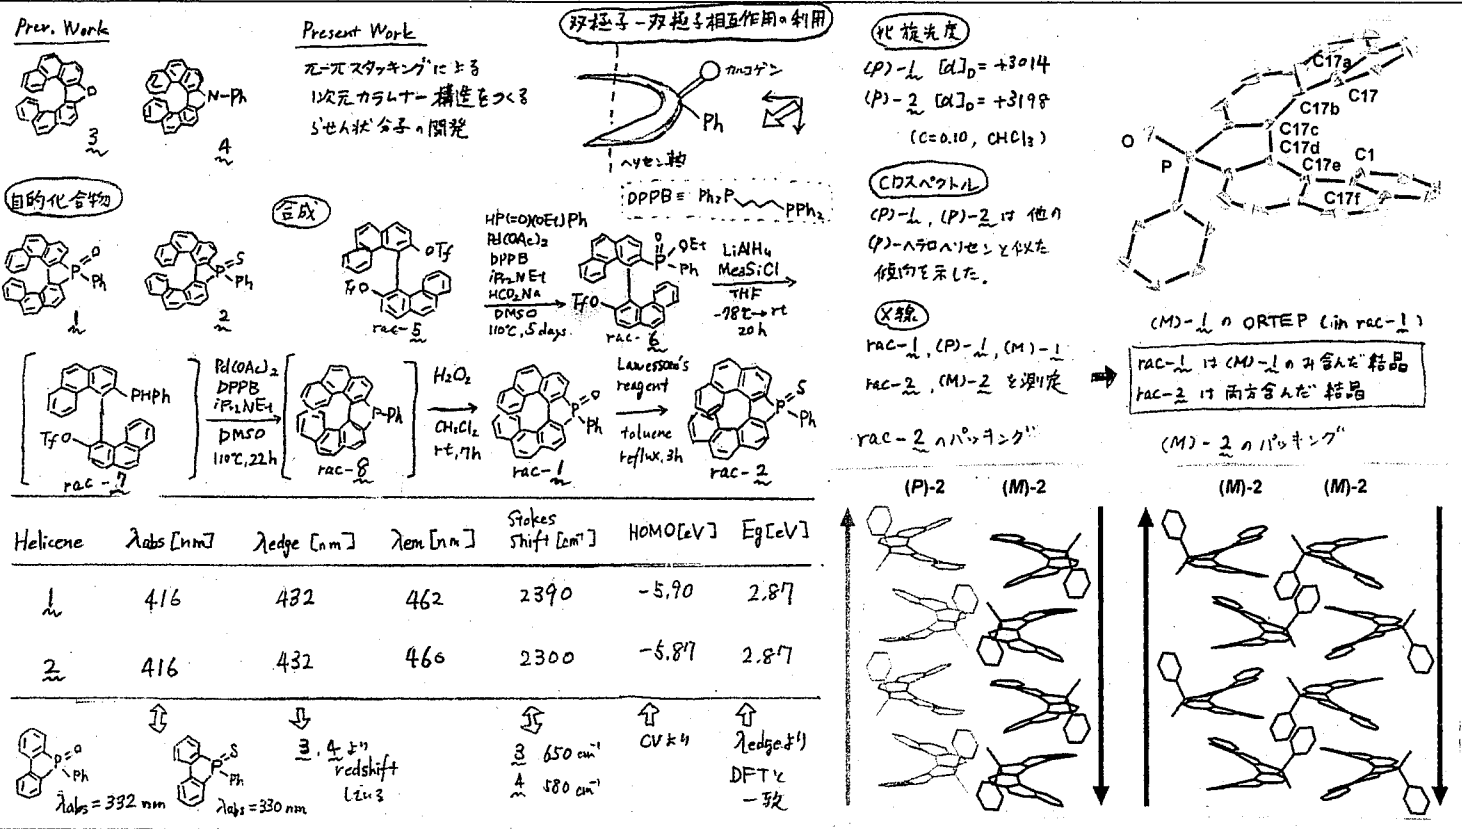 Prev. Work
O
3
N-Ph
4
Present Work
π-πスタッキングによる
1次元カラムナー構造をつくる
らせん状分子の開発
双極子-双極子相互作用の利用
カルコゲン
Ph
ヘリセン軸
目的化合物
P
O
Ph
1
P
S
Ph
2
合成
DPPB ≡ Ph2P PPh2
OTf
TfO
rac-5
HP(=O)(OEt)Ph
Pd(OAc)2
DPPB
iPr2NEt
HCO2Na
DMSO
110℃, 5 days.
O
P
OEt
Ph
TfO
rac-6
LiAlH4
Me3SiCl
THF
-78℃→rt
20h
PHPh
TfO
rac-7
Pd(OAc)2
DPPB
iPr2NEt
DMSO
110℃, 22h
P-Ph
rac-8
H2O2
CH2Cl2
rt, 7h
P
O
Ph
rac-1
Lawesson's
reagent
toluene
reflux, 3h
P
S
Ph
rac-2
Helicene λabs [nm] λedge [nm] λem [nm] Stokes shift [cm-1] HOMO [eV] Eg [eV]
1 416 432 462 2390 -5.90 2.87
2 416 432 460 2300 -5.87 2.87
P
O
Ph
λabs = 332 nm
P
S
Ph
λabs = 330 nm
3, 4より
redshift
している
3 650 cm-1
4 580 cm-1
CVより
λedgeより
DFTと
一致
比旋光度
(P)-1 [α]D = +3014
(P)-2 [α]D = +3198
(C=0.10, CHCl3)
CDスペクトル
(P)-1, (P)-2 は他の
(P)-ヘテロヘリセンと似た
傾向を示した.
X線
rac-1, (P)-1, (M)-1
rac-2, (M)-2 を測定
C17a
C17
C17b
O
C17c
P
C17d
C17e
C1
C17f
(M)-1 の ORTEP (in rac-1)
rac-1 は (M)-1 のみ含んだ結晶
rac-2 は両方含んだ結晶
rac-2 のパッキング
(M)-2 のパッキング
(P)-2 (M)-2
(M)-2 (M)-2